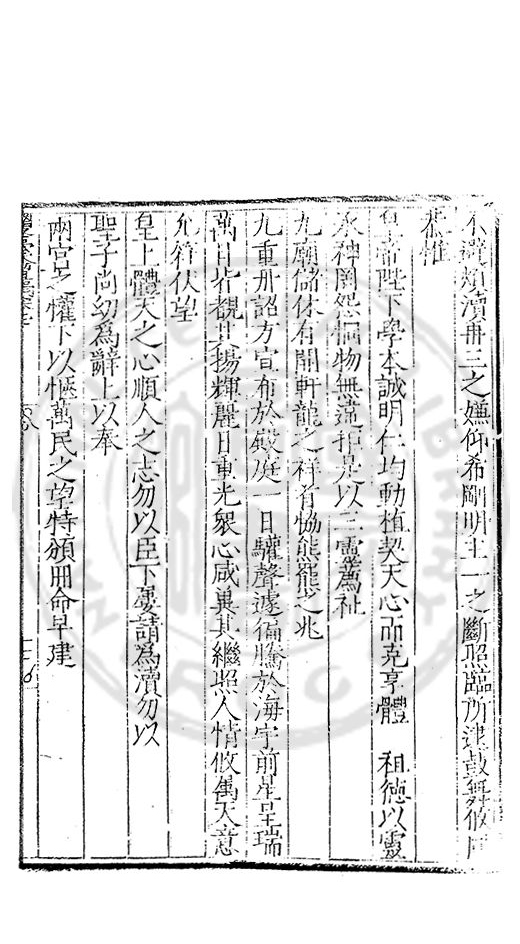 不避煩瀆冊三之嫌仰希剛明主一之斷照臨所逮鼓舞攸同
恭惟
皇帝陛下學本誠明仁均動植契天心而克享體 祖德以靈
承神罔怨恫物無違拒是以三靈薦祉
九廟儲休有開軒龍之祥肯恊熊羆之兆
九重冊詔方宣布於殿庭一日驩聲遽徧騰於海宇前星呈瑞
萬目皆覩其揚輝麗日重光衆心咸冀其繼照人情攸屬天意
允符伏望
皇上體天之心順人之志勿以臣下憂請為瀆勿以
聖子尚幼為辭上以奉
兩宮之懽下以愜萬民之望特頒冊命早建